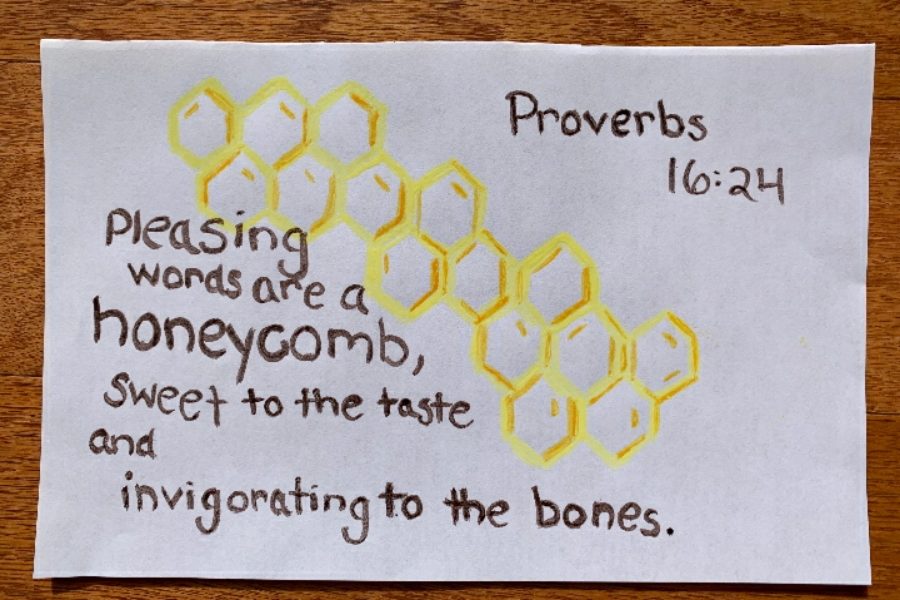 Proverbs
16:24
Pleasing
words are a
honeycomb,
sweet to the taste
and
invigorating to the bones.